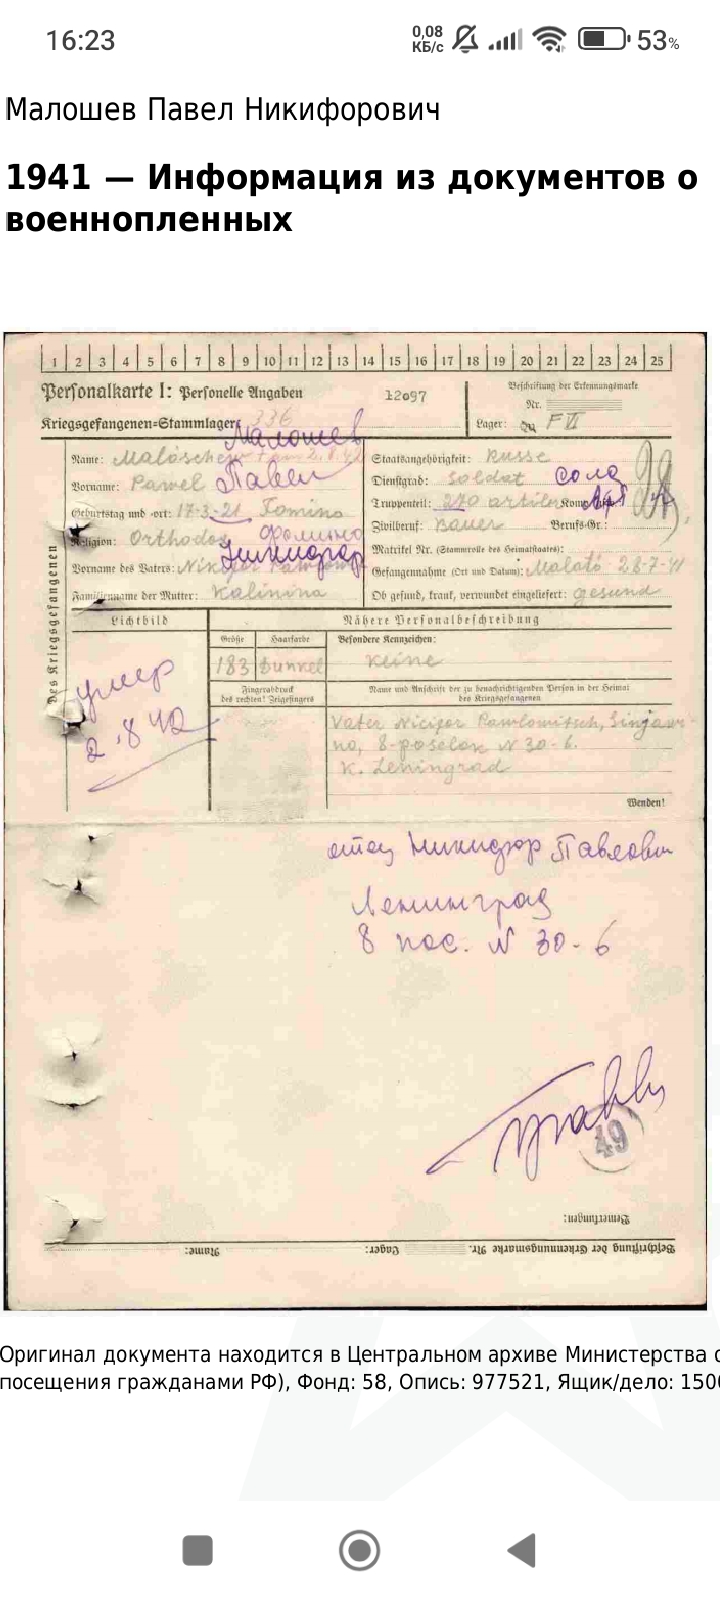 16:23
0,08 КБ/с
53%
Малошев Павел Никифорович
1941 — Информация из документов о
военнопленных
1 2 3 4 5 6 7 8 9 10 11 12 13 14 15 16 17 18 19 20 21 22 23 24 25
Personalkarte I: Personelle Angaben
12097
Beschriftung der Erkennungsmarke
Nr.
Kriegsgefangenen-Stammlager: 336
Lager: F VI
Малошев
Des Kriegsgefangenen
Name: Maloschew
Staatsangehörigkeit: Russe
Vorname: Pawel Павел
Dienstgrad: Soldat солд
Geburtstag und -ort: 17-3-21 Fomino
Truppenteil: 270 artiler Kom
Фомино
Religion: Orthodox
Zivilberuf: Bauer Berufs-Gr.:
Никифор
Matrikel Nr. (Stammrolle des Heimatstaates):
Vorname des Vaters:
Gefangennahme (Ort und Datum): 28-7-41
Familienname der Mutter: Kalinina
Ob gesund, krank, verwundet eingeliefert: gesund
Lichtbild
Nähere Personalbeschreibung
Größe
Haarfarbe
Besondere Kennzeichen:
183
Dunkel
Keine
умер
2.8.42
Fingerabdruck
des rechten! Zeigefingers
Name und Anschrift der zu benachrichtigenden Person in der Heimat
des Kriegsgefangenen
Vater Nicifor Pawlowitsch, Sinjawi-
no, 8-poselok N 30-6.
K. Leningrad
Wenden!
отец Никифор Павлович
Ленинград
8 пос. N 30-6
49
Bemerkungen:
Beschriftung der Erkennungsmarke Nr.
Lager:
Name:
Оригинал документа находится в Центральном архиве Министерства о
посещения гражданами РФ), Фонд: 58, Опись: 977521, Ящик/дело: 1500